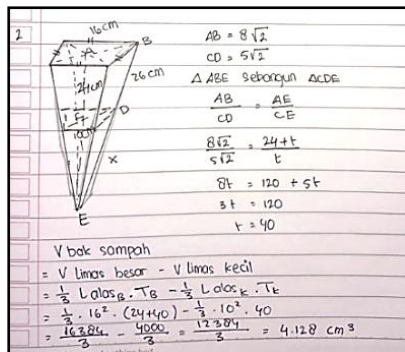 2
16 cm
A
B
24 cm
26 cm
D
10 cm
x
E
AB = 8√2
CD = 5√2
△ ABE sebangun △CDE
AB/CD = AE/CE
8√2/5√2 = 24+t/t
8t = 120 + 5t
3t = 120
t = 40
V bak sampah
= V limas besar - V limas kecil
= 1/3 Lalas_B . T_B - 1/3 Lalas_K . T_K
= 1/3 . 16² . (24+40) - 1/3 . 10² . 40
= 16384/3 - 4000/3 = 12384/3 = 4.128 cm³